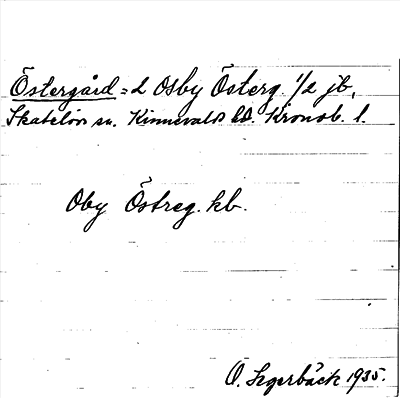 Östergård = 2 Osby Österg. 1/2 jb,
Skatelöv sn. Kinnevalds hd. Kronob. l.
Oby Östreg. kb.
O. Segerbäck 1935.